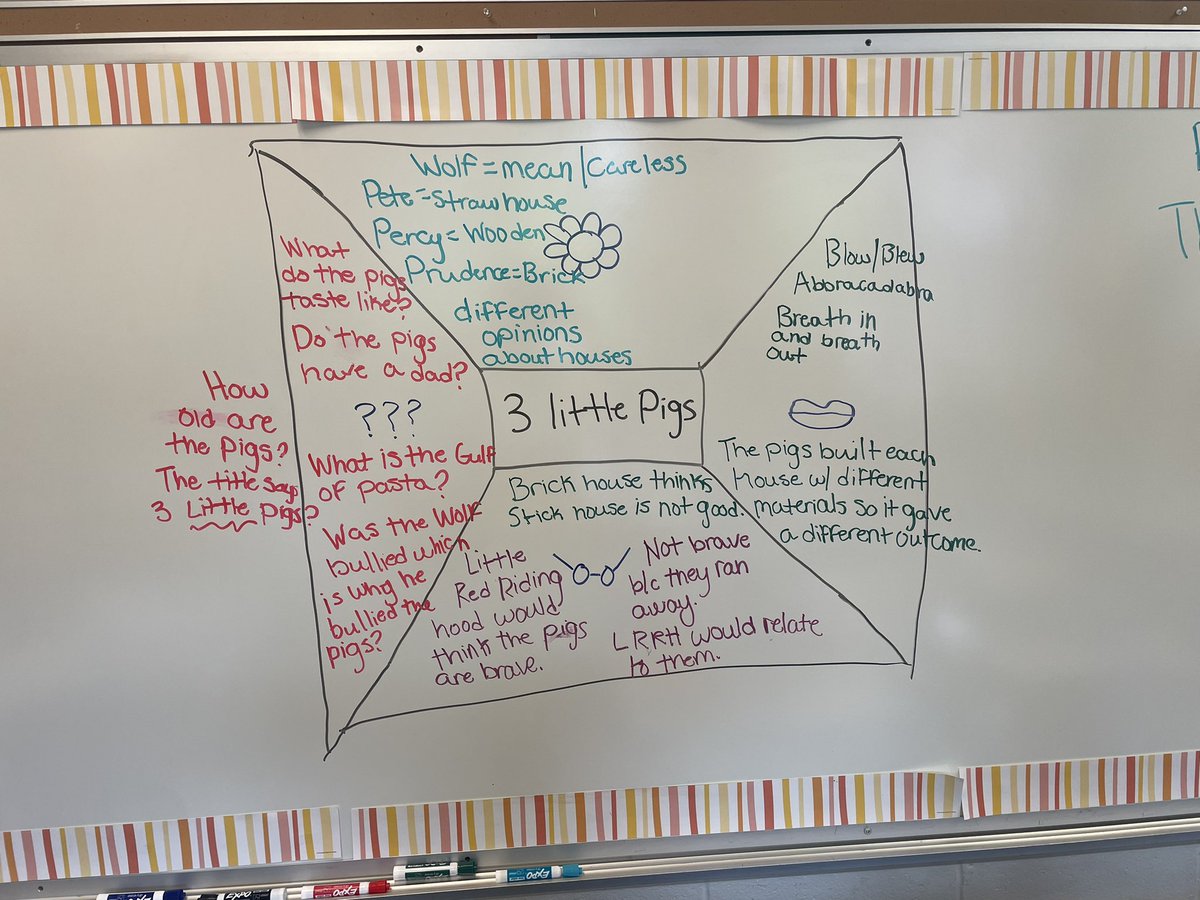 Wolf = mean / Careless
Pete = Straw house
Percy = Wooden
Prudence = Brick
different
opinions
about houses
What
do the pigs
taste like?
Do the pigs
have a dad?
???
What is the Gulf
of pasta?
Was the Wolf
bullied which
is why he
bullied the
pigs?
How
old are
the pigs?
The title says
3 Little Pigs?
3 little Pigs
Blow/Blew
Abbracadabra
Breath in
and breath
out
The pigs built each
house w/ different
materials so it gave
a different outcome.
Brick house thinks
Stick house is not good.
Little
Red Riding
hood would
think the pigs
are brave.
Not brave
b/c they ran
away.
LRRH would relate
to them.
EXPO
EXPO
EXPO